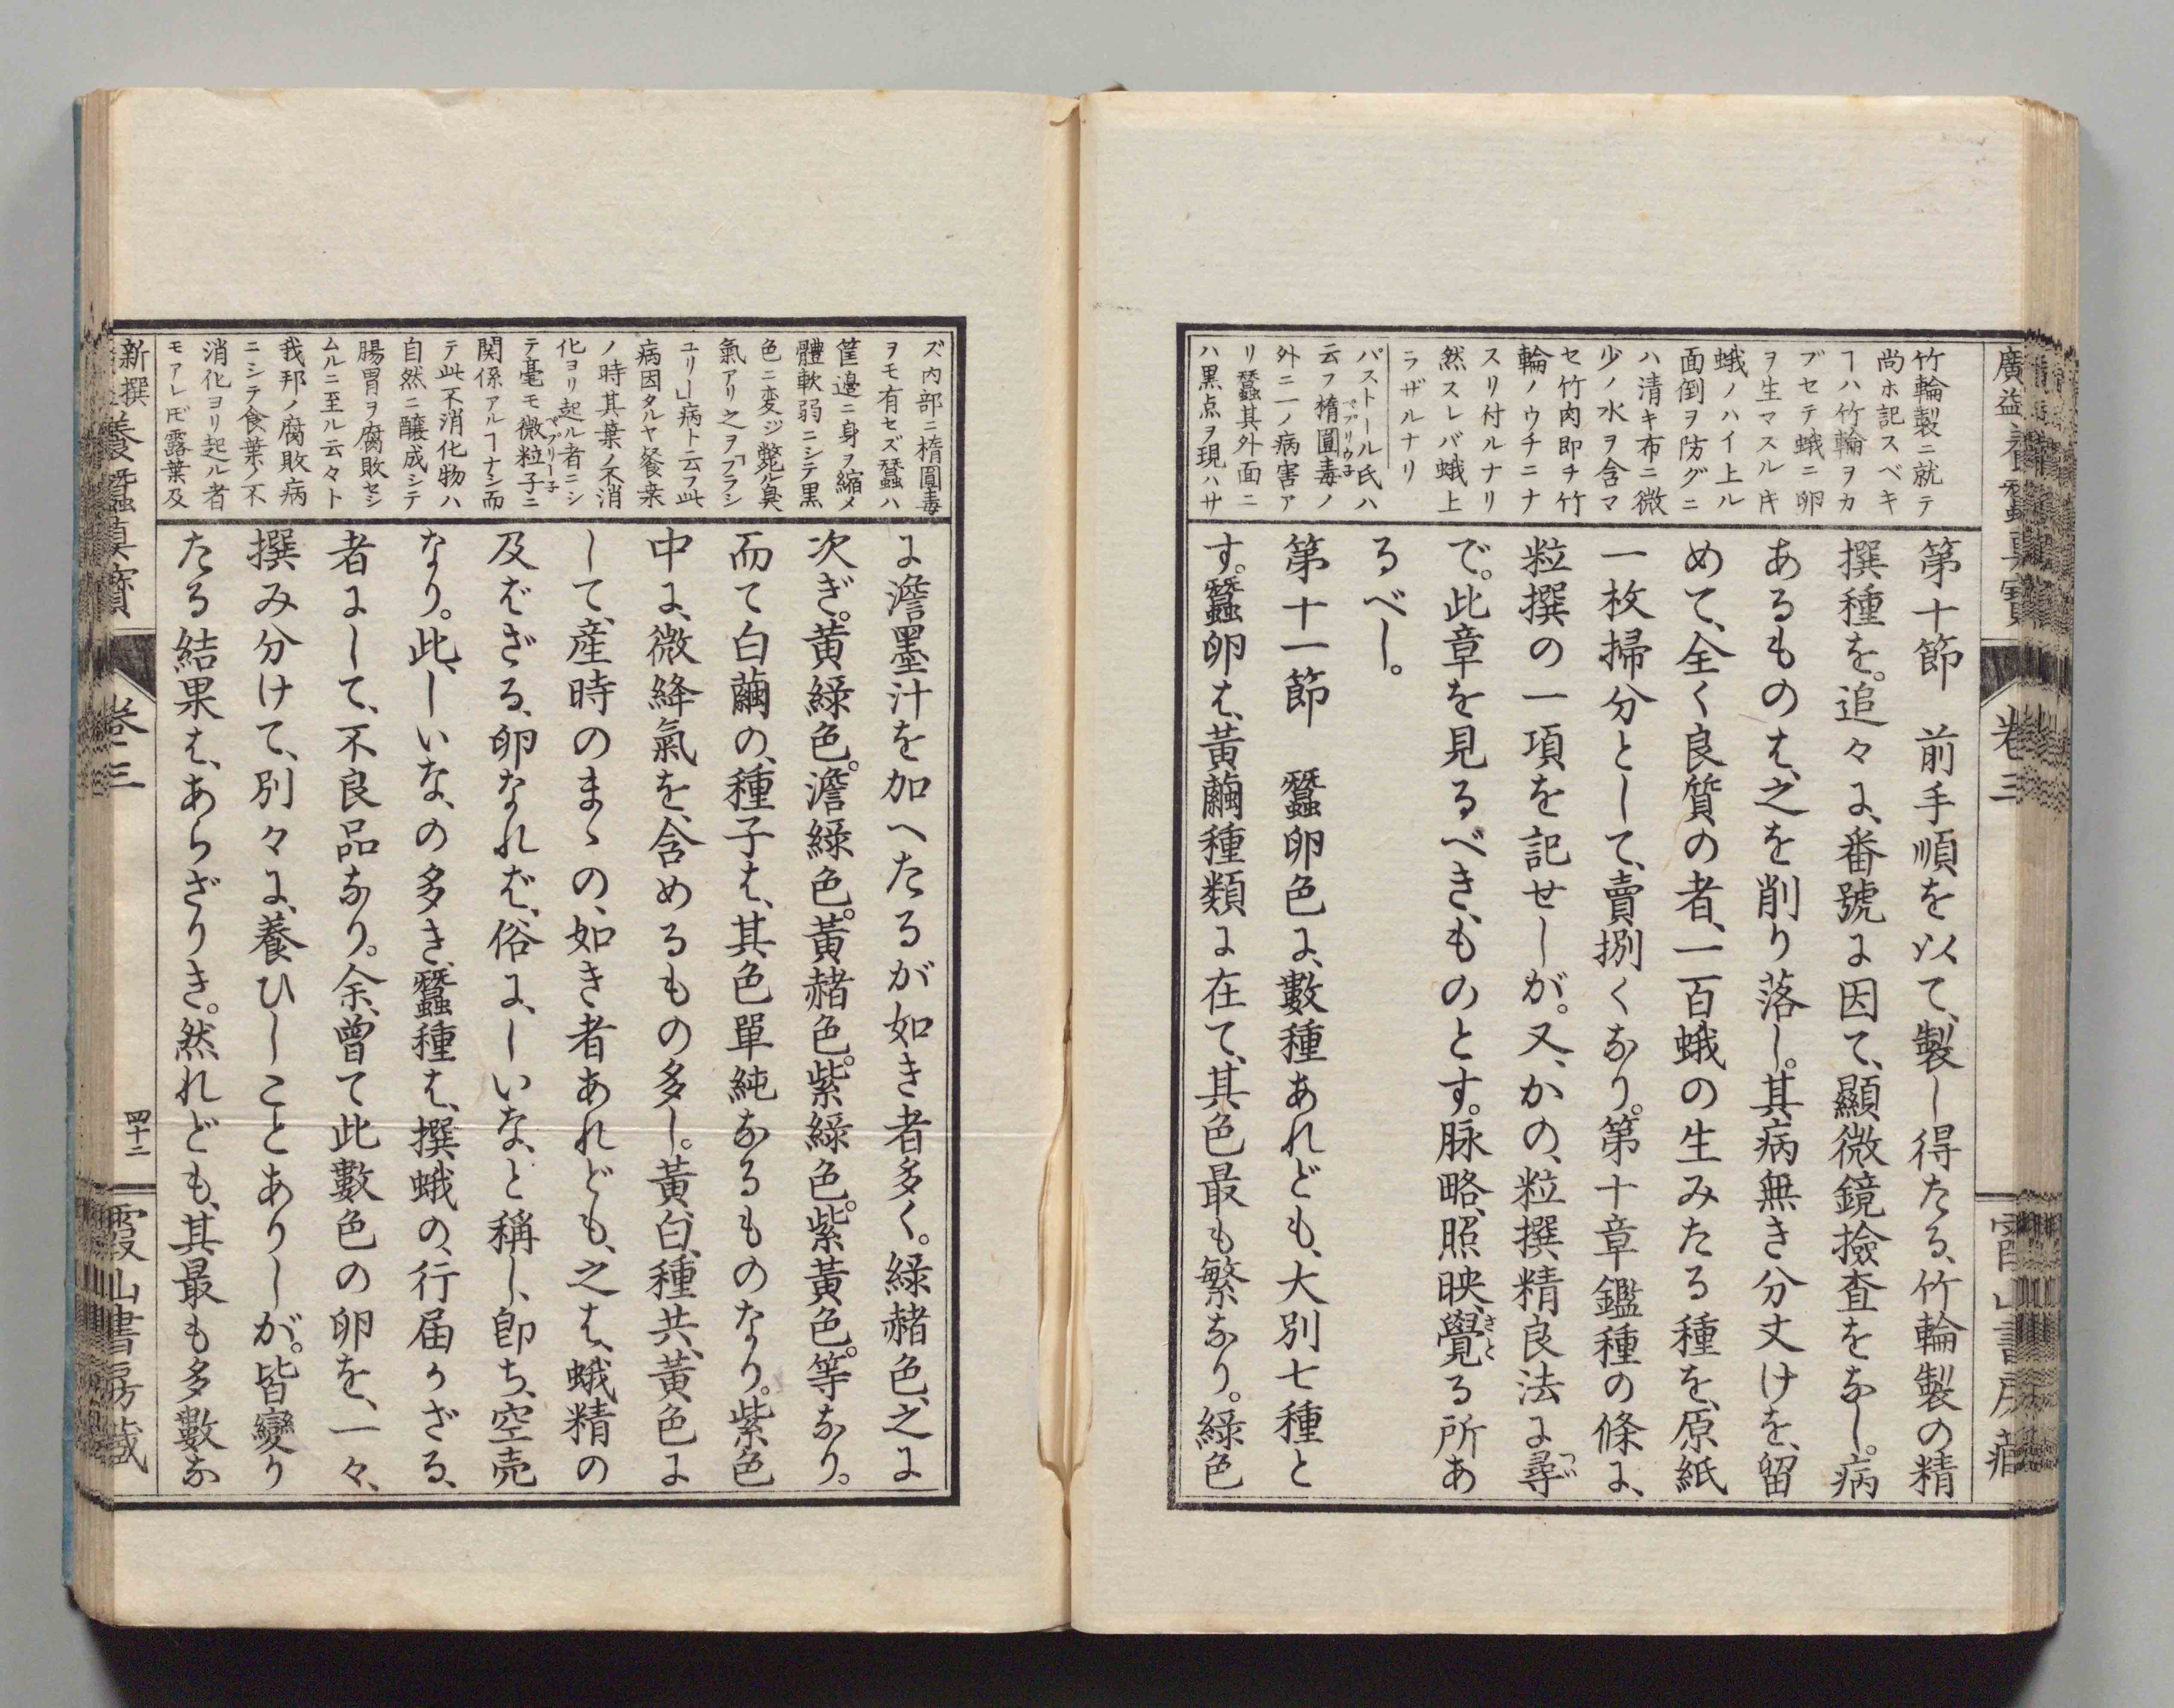 竹輪製ニ就テ
尚ホ記スベキ
ヿハ竹輪ヲカ
ブセテ蛾ニ卵
ヲ生マスル𪜈
蛾ノハイ上ル
面倒ヲ防グニ
ハ清キ布ニ微
少ノ水ヲ含マ
セ竹肉即チ竹
輪ノウチニナ
スリ付ルナリ
然スレバ蛾上
ラザルナリ
パストール氏ハ
云フ楕圓毒ノ
ペブリウ子
外ニ一ノ病害ア
リ蠶其外面ニ
ハ黒点ヲ現ハサ
第十節　前手順を以て、製し得たる、竹輪製の精
撰種を。追々に、番號に因て、顯微鏡撿査をなし。病
あるものは、之を削り落し。其病無き分丈けを、留
めて、全く良質の者、一百蛾の生みたる種を、原紙
一枚掃分として、賣捌くなり。第十章鑑種の條に、
粒撰の一項を記せしが。又、かの、粒撰精良法に尋
つい
で。此章を見るべき、ものとす。脉略、照映、覺る所あ
さと
るべし。
第十一節　蠶卵色に、數種あれども、大別七種と
す。蠶卵は、黄繭種類に在て、其色最も繁なり。緑色
卷三
ズ内部ニ楕圓毒
ヲモ有セズ蠶ハ
筐邊ニ身ヲ縮メ
體軟弱ニシテ黒
色ニ変ジ斃ル臭
氣アリ之ヲ「フラシ
ユリー」病ト云フ此
病因タルヤ餐桒
ノ時其葉ノ不消
化ヨリ起ル者ニシ
テ毫モ微粒子ニ
ペブリー子
関係アルヿナシ而
テ此不消化物ハ
自然ニ醸成シテ
腸胃ヲ腐敗セシ
ムルニ至ル云々ト
我邦ノ腐敗病
ニシテ食葉ノ不
消化ヨリ起ル者
モアレ𪜈露葉及
に澹墨汁を加へたるが如き者多く。緑赭色、之に
次ぎ。黄緑色。澹緑色。黄赭色。紫緑色。紫黄色。等なり。
而て白繭の、種子は、其色單純なるものなり。紫色
中に、微絳氣を、含めるもの多し。黄、白、種共、黄色に
して、産時のまゝの、如き者あれども、之は、蛾精の
及ばざる、卵なれば、俗に、しいな、と稱し、卽ち、空売
なり。此、しいな、の多き、蠶種は、撰蛾の、行届かざる、
者にして、不良品なり。余、曽て此數色の卵を、一々、
撰み分けて、別々に、養ひしことありしが。皆變り
たる結果は、あらざりき。然れども、其最も多數な
新撰養蠶真寳
卷三
四十二
霞山書房藏